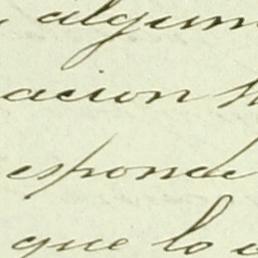 algun
acion
esponde
que lo